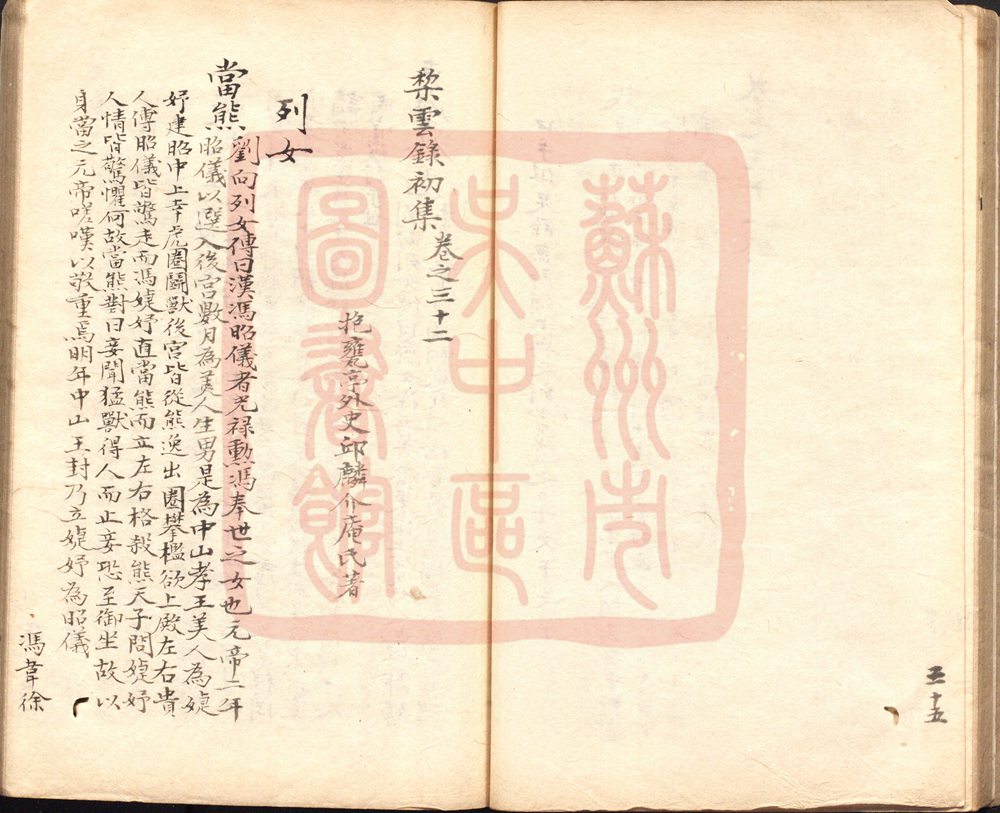 五十五
蘇州市
吳中區
圖書館
棃雲錄初集 卷之三十二
抱甕亭外史邱麟介庵氏著
列女
當熊 劉向列女傳曰漢馮昭儀者光祿勳馮奉世之女也元帝二年
昭儀以選入後宮數月為美人生男是為中山孝王美人為婕
妤建昭中上幸虎圈鬬獸後宮皆從熊逸出圈攀檻欲上殿左右貴
人傅昭儀皆驚走而馮婕妤直當熊而立左右格殺熊天子問婕妤
人情皆驚懼何故當熊對曰妾聞猛獸得人而止妾恐至御坐故以
身當之元帝嗟嘆以敬重焉明年中山王封乃立婕妤為昭儀
馮韋徐